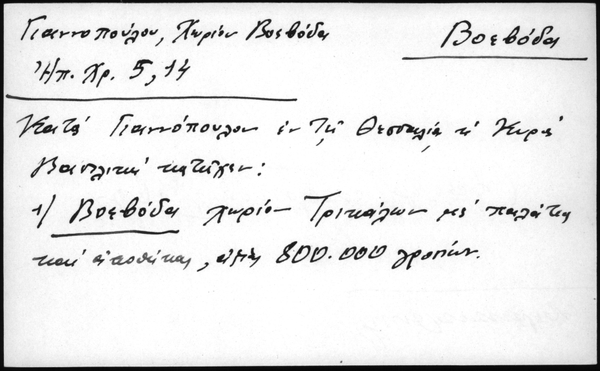 Γιαννοπούλου, Χωρίον Βοεβόδα
Βοεβόδα
Ἠπ. Χρ. 5, 14
Κατά Γιαννόπουλον ἐν τῇ Θεσσαλίᾳ ἡ Κυρά
Βασιλική κατεῖχεν:
1) Βοεβόδα χωρίον Τρικάλων μέ παλάτια
καί ἀποθήκας, ἀξίας 800.000 γροσίων.